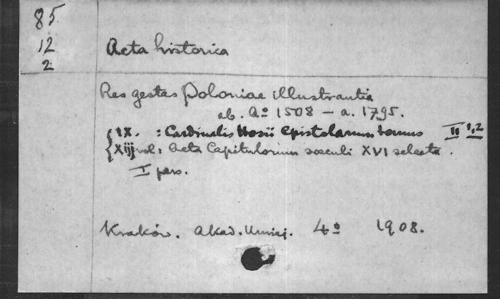 85
12
2
Acta historica
Res gestas Poloniae illustrantia
ab. Aº 1508 – a. 1795.
IX. : Cardinalis Hosii Epistolarum tomus II 1,2
XIII vol: Acta Capitulorum saeculi XVI selecta.
I pars.
Kraków. Akad. Umiej. 4º 1908.